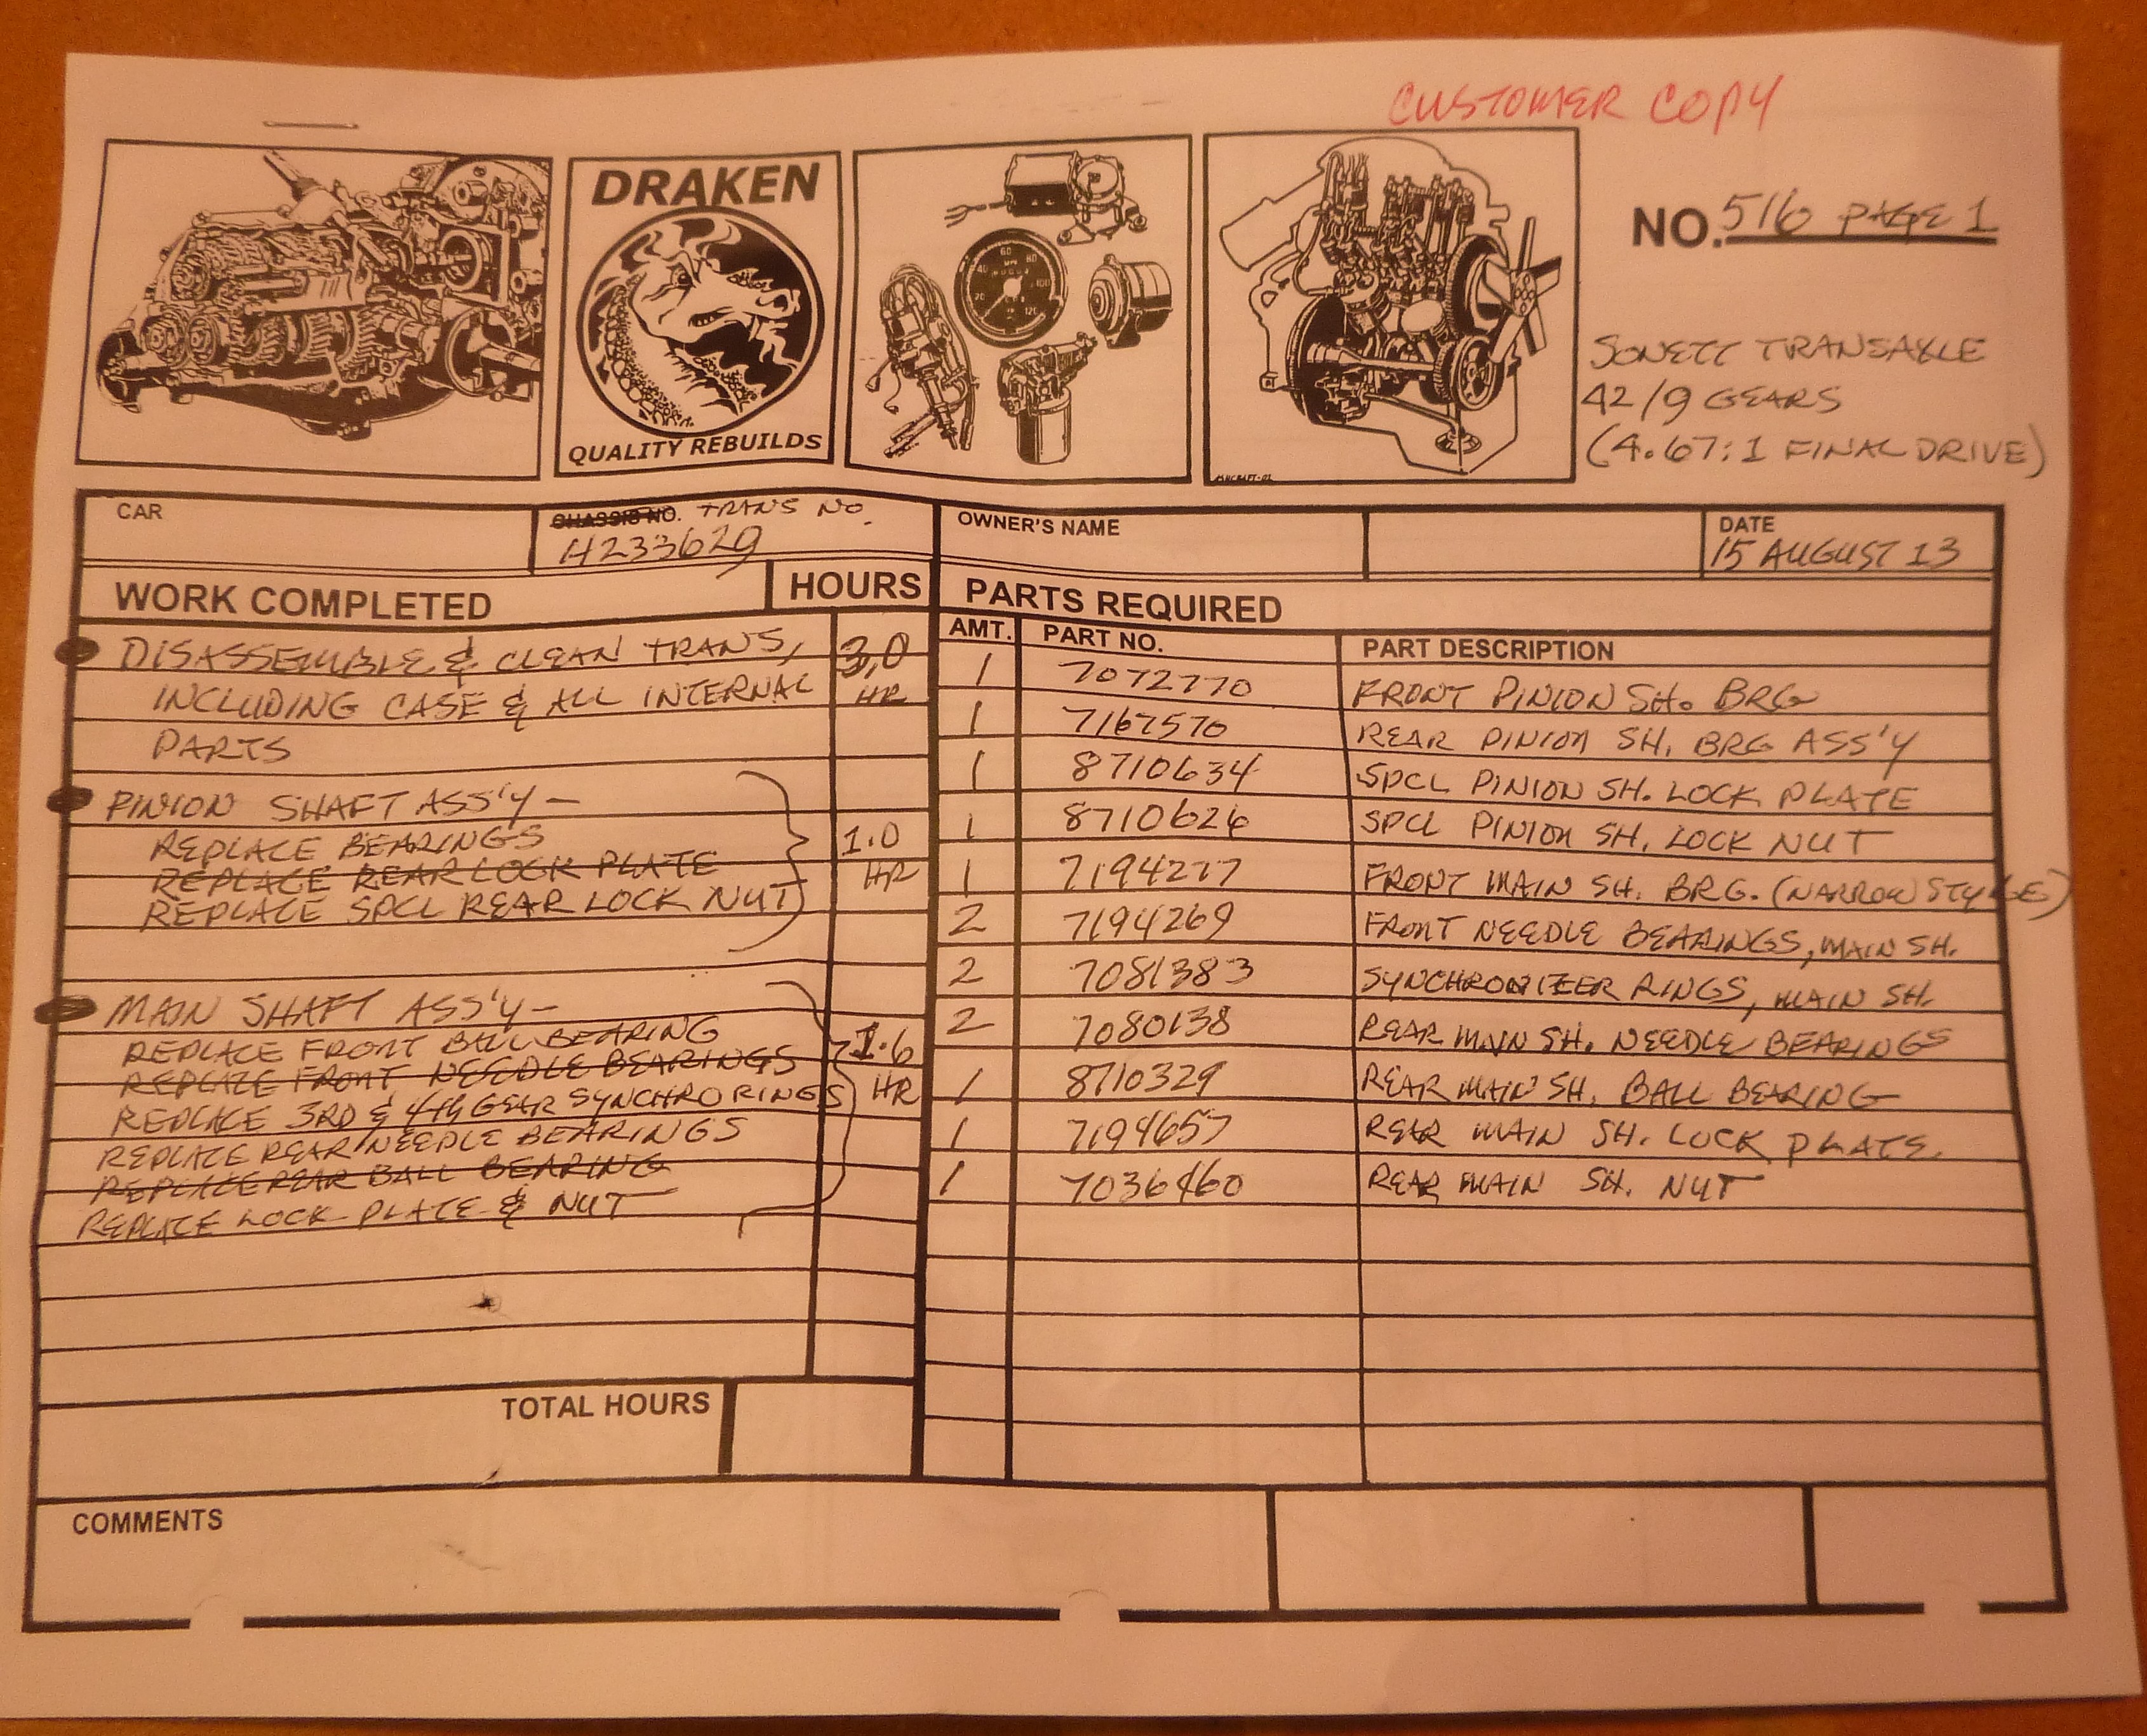 CUSTOMER COPY
DRAKEN
QUALITY REBUILDS
NO. 516 PAGE 1
SONETT TRANSAXLE
42/9 GEARS
(4.67:1 FINAL DRIVE)
CAR
CHASSIS NO. TRANS NO.
H233629
OWNER'S NAME
DATE
15 AUGUST 13
WORK COMPLETED
HOURS
DISASSEMBLE & CLEAN TRANS, 3.0
INCLUDING CASE & ALL INTERNAL HR
PARTS
PINION SHAFT ASS'Y -
REPLACE BEARINGS 1.0
REPLACE REAR LOCK PLATE HR
REPLACE SPCL REAR LOCK NUT
MAIN SHAFT ASS'Y -
REPLACE FRONT BALL BEARING 1.6
REPLACE FRONT NEEDLE BEARINGS HR
REPLACE 3RD & 4th GEAR SYNCHRO RINGS
REPLACE REAR NEEDLE BEARINGS
REPLACE REAR BALL BEARING
REPLACE LOCK PLATE & NUT
TOTAL HOURS
PARTS REQUIRED
AMT. PART NO. PART DESCRIPTION
1 7072770 FRONT PINION SH. BRG
1 7167570 REAR PINION SH. BRG ASS'Y
1 8710634 SPCL PINION SH. LOCK PLATE
1 8710626 SPCL PINION SH. LOCK NUT
1 7194277 FRONT MAIN SH. BRG. (NARROW STYLE)
2 7194269 FRONT NEEDLE BEARINGS, MAIN SH.
2 7081383 SYNCHRONIZER RINGS, MAIN SH.
2 7080138 REAR MAIN SH. NEEDLE BEARINGS
1 8710329 REAR MAIN SH. BALL BEARING
1 7194657 REAR MAIN SH. LOCK PLATE
1 7036460 REAR MAIN SH. NUT
COMMENTS